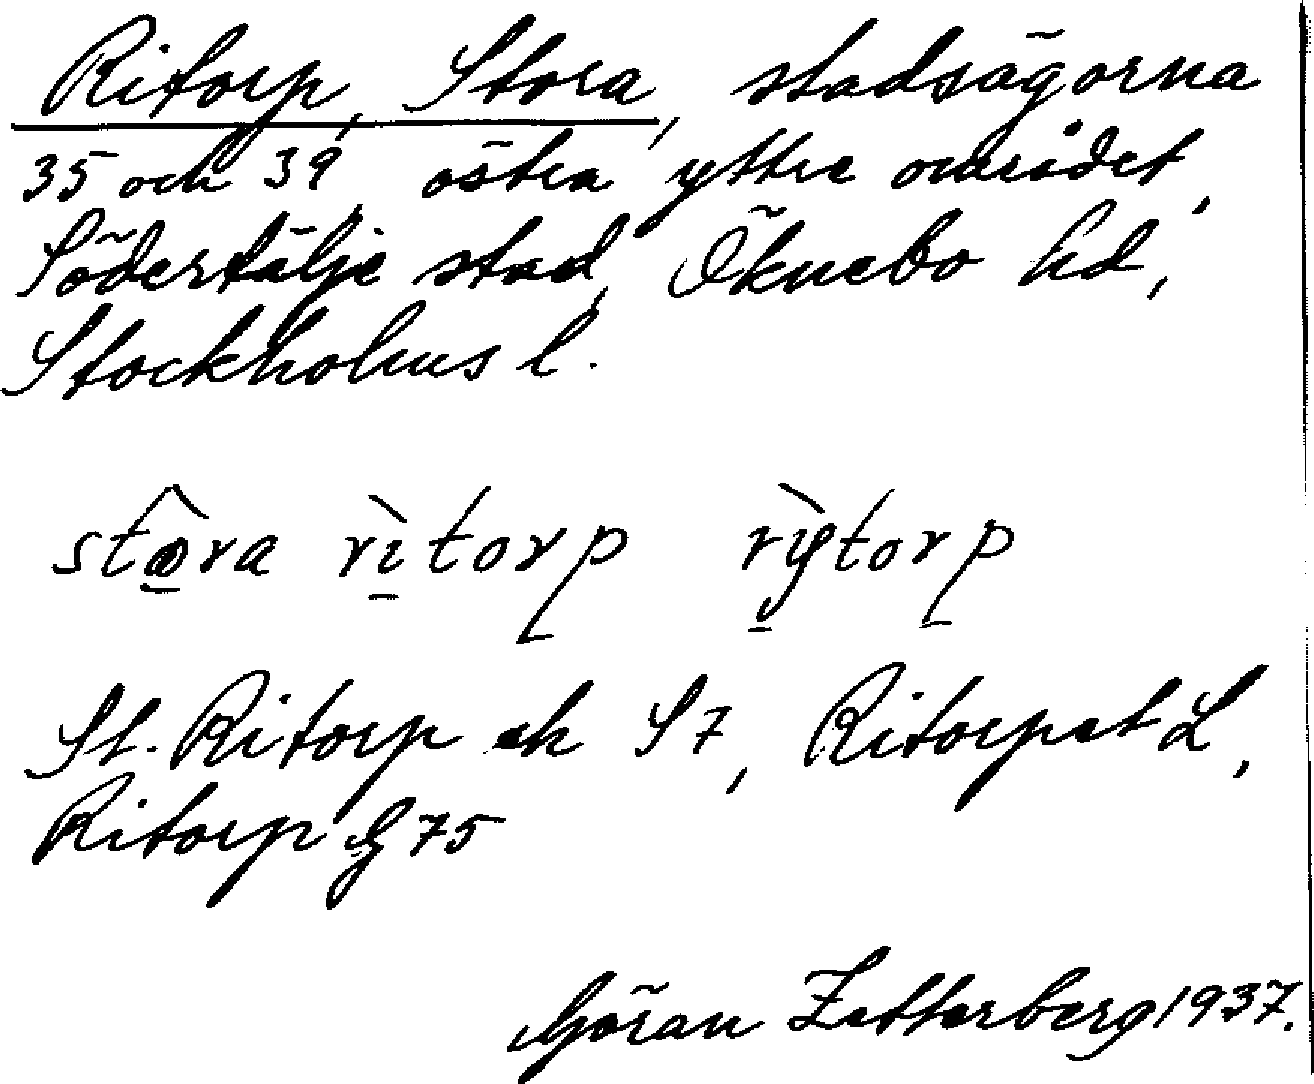 Ritorp, Stora, stadsägorna
35 och 39, östra yttre området,
Södertälje stad, Öknebo hd,
Stockholms l.
stɷ̂ra rìtorp rỳtorp
St. Ritorp ek S7, Ritorpet L,
Ritorp G 75
Göran Zetterberg 1937.